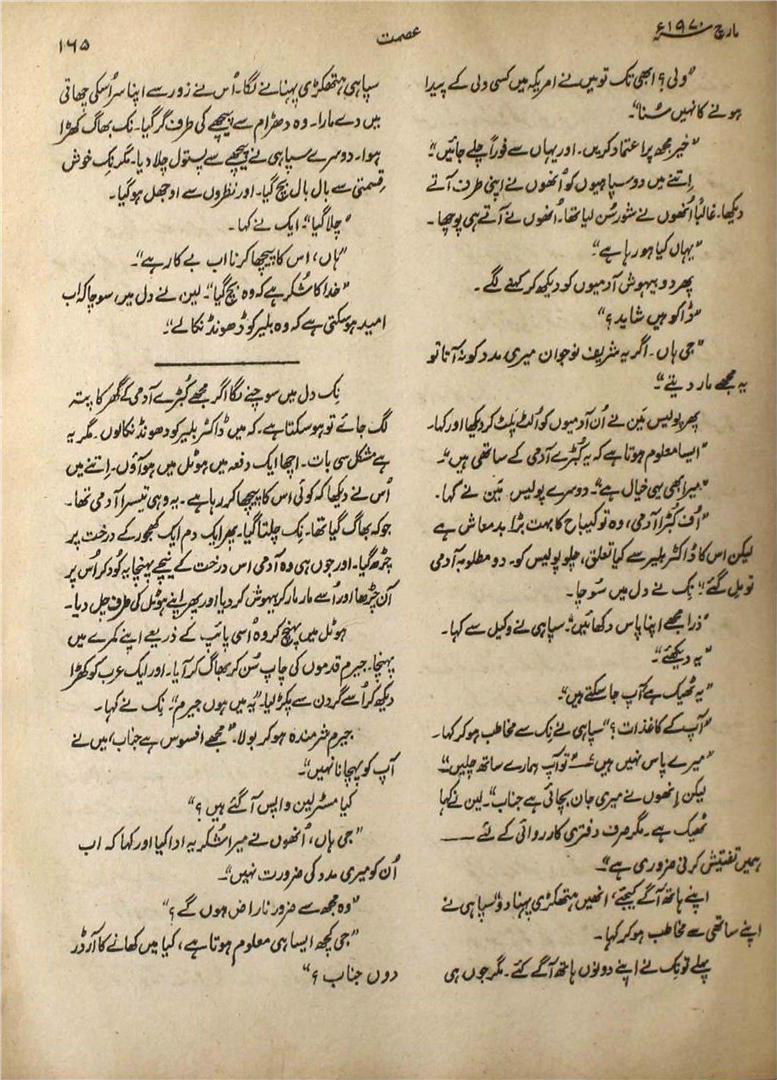 مارچ ۱۹۷۰ء
عصمت
۱۶۵
"ولی؟ ابھی تک تو میں نے امریکہ میں کسی ولی کے پیدا
ہونے کا نہیں سُنا"۔
"خیر مجھ پر اعتماد کریں۔ اور یہاں سے فوراً چلے جائیں"۔
اِتنے میں دو سپاہیوں کو اُنھوں نے اپنی طرف آتے
دیکھا۔ غالباً اُنھوں نے شور سُن لیا تھا۔ اُنھوں نے آتے ہی پوچھا۔
"یہاں کیا ہو رہا ہے"۔
پھر دو بیہوش آدمیوں کو دیکھ کر کہنے لگے۔
"ڈاکو ہیں شاید؟"
"جی ہاں۔ اگر یہ شریف نوجوان میری مدد کو نہ آتا تو
یہ مجھے مار دیتے"۔
پھر پولیس مَین نے اُن آدمیوں کو اُلٹ پلٹ کر دیکھا اور کہا۔
"ایسا معلوم ہوتا ہے کہ یہ کُبڑے آدمی کے ساتھی ہیں"۔
"میرا بھی یہی خیال ہے"۔ دوسرے پولیس مَین نے کہا۔
"اُف کُبڑا آدمی، وہ تو کیباح کا بہت بڑا بدمعاش ہے
لیکن اس کا ڈاکٹر بلیر سے کیا تعلق، چلو پولیس کو۔ دو مطلوبہ آدمی
تو مل گئے"؛ نِک نے دل میں سوچا۔
"ذرا مجھے اپنا پاس دکھائیں"۔ سپاہی نے وکیل سے کہا۔
"یہ دیکھئے"۔
"یہ ٹھیک ہے آپ جا سکتے ہیں"۔
"آپ کے کاغذات؟" سپاہی نے نِک سے مخاطب ہو کر کہا۔
"میرے پاس نہیں ہیں" "تو آپ ہمارے ساتھ چلیں"۔
لیکن اِنھوں نے میری جان بچائی ہے جناب"۔ لین نے کہا
ٹھیک ہے۔ مگر صرف دفتری کارروائی کے لئے ——
ہمیں تفتیش کرنی ضروری ہے"۔
اپنے ہاتھ آگے کیجئے، انھیں ہتھکڑی پہنا دو" سپاہی نے
اپنے ساتھی سے مخاطب ہو کر کہا۔
پہلے تو نِک نے اپنے دونوں ہاتھ آگے کئے۔ مگر جوں ہی
سپاہی ہتھکڑی پہنانے لگا۔ اُس نے زور سے اپنا سر اُسکی چھاتی
میں دے مارا۔ وہ دھڑام سے پیچھے کی طرف گر گیا۔ نِک بھاگ کھڑا
ہوا۔ دوسرے سپاہی نے پیچھے سے پستول چلا دیا۔ مگر نِک خوش
قِسمتی سے بال بال بچ گیا۔ اور نظروں سے اوجھل ہو گیا۔
"چلا گیا"۔ ایک نے کہا۔
"ہاں، اس کا پیچھا کرنا اب بے کار ہے"۔
"خدا کا شُکر ہے کہ وہ بچ گیا"۔ لین نے دل میں سوچا کہ اب
امید ہو سکتی ہے کہ وہ بلیر کو ڈھونڈ نکالے"۔
نِک دل میں سوچنے لگا اگر مجھے کُبڑے آدمی کے گھر کا پتہ
لگ جائے تو ہو سکتا ہے، کہ میں ڈاکٹر بلیر کو ڈھونڈ نکالوں۔ مگر یہ
ہے مشکل سی بات۔ اچھا ایک دفعہ میں ہوٹل میں ہو آؤں۔ اِتنے میں
اُس نے دیکھا کہ کوئی اس کا پیچھا کر رہا ہے۔ یہ وہی تیسرا آدمی تھا۔
جو کہ بھاگ گیا تھا۔ نِک چلتا گیا۔ پھر ایک دم ایک کھجور کے درخت پر
چڑھ گیا۔ اور جوں ہی وہ آدمی اس درخت کے نیچے پہنچا یہ کُود کر اُس پر
آن چڑھا اور اُسے مار مار کر بیہوش کر دیا اور پھر اپنے ہوٹل کی طرف چل دیا۔
ہوٹل میں پہنچ کر وہ اُسی پائپ کے ذریعے اپنے کمرے میں
پہنچا۔ جیرم قدموں کی چاپ سُن کر بھاگ کر آیا۔ اور ایک عرب کو کھڑا
دیکھ کر اُسے گردن سے پکڑ لیا۔ "یہ میں ہوں جیرم"۔ نِک نے کہا۔
جیرم شرمندہ ہو کر بولا۔ "مجھے افسوس ہے جناب، میں نے
آپ کو پہچانا نہیں"۔
کیا مسٹر لین واپس آ گئے ہیں؟"
"جی ہاں، اُنھوں نے میرا شُکریہ ادا کیا اور کہا کہ اب
اُن کو میری مدد کی ضرورت نہیں"۔
"وہ مجھ سے ضرور ناراض ہوں گے؟"
"جی کچھ ایسا ہی معلوم ہوتا ہے، کیا میں کھانے کا آرڈر
دوں جناب؟"